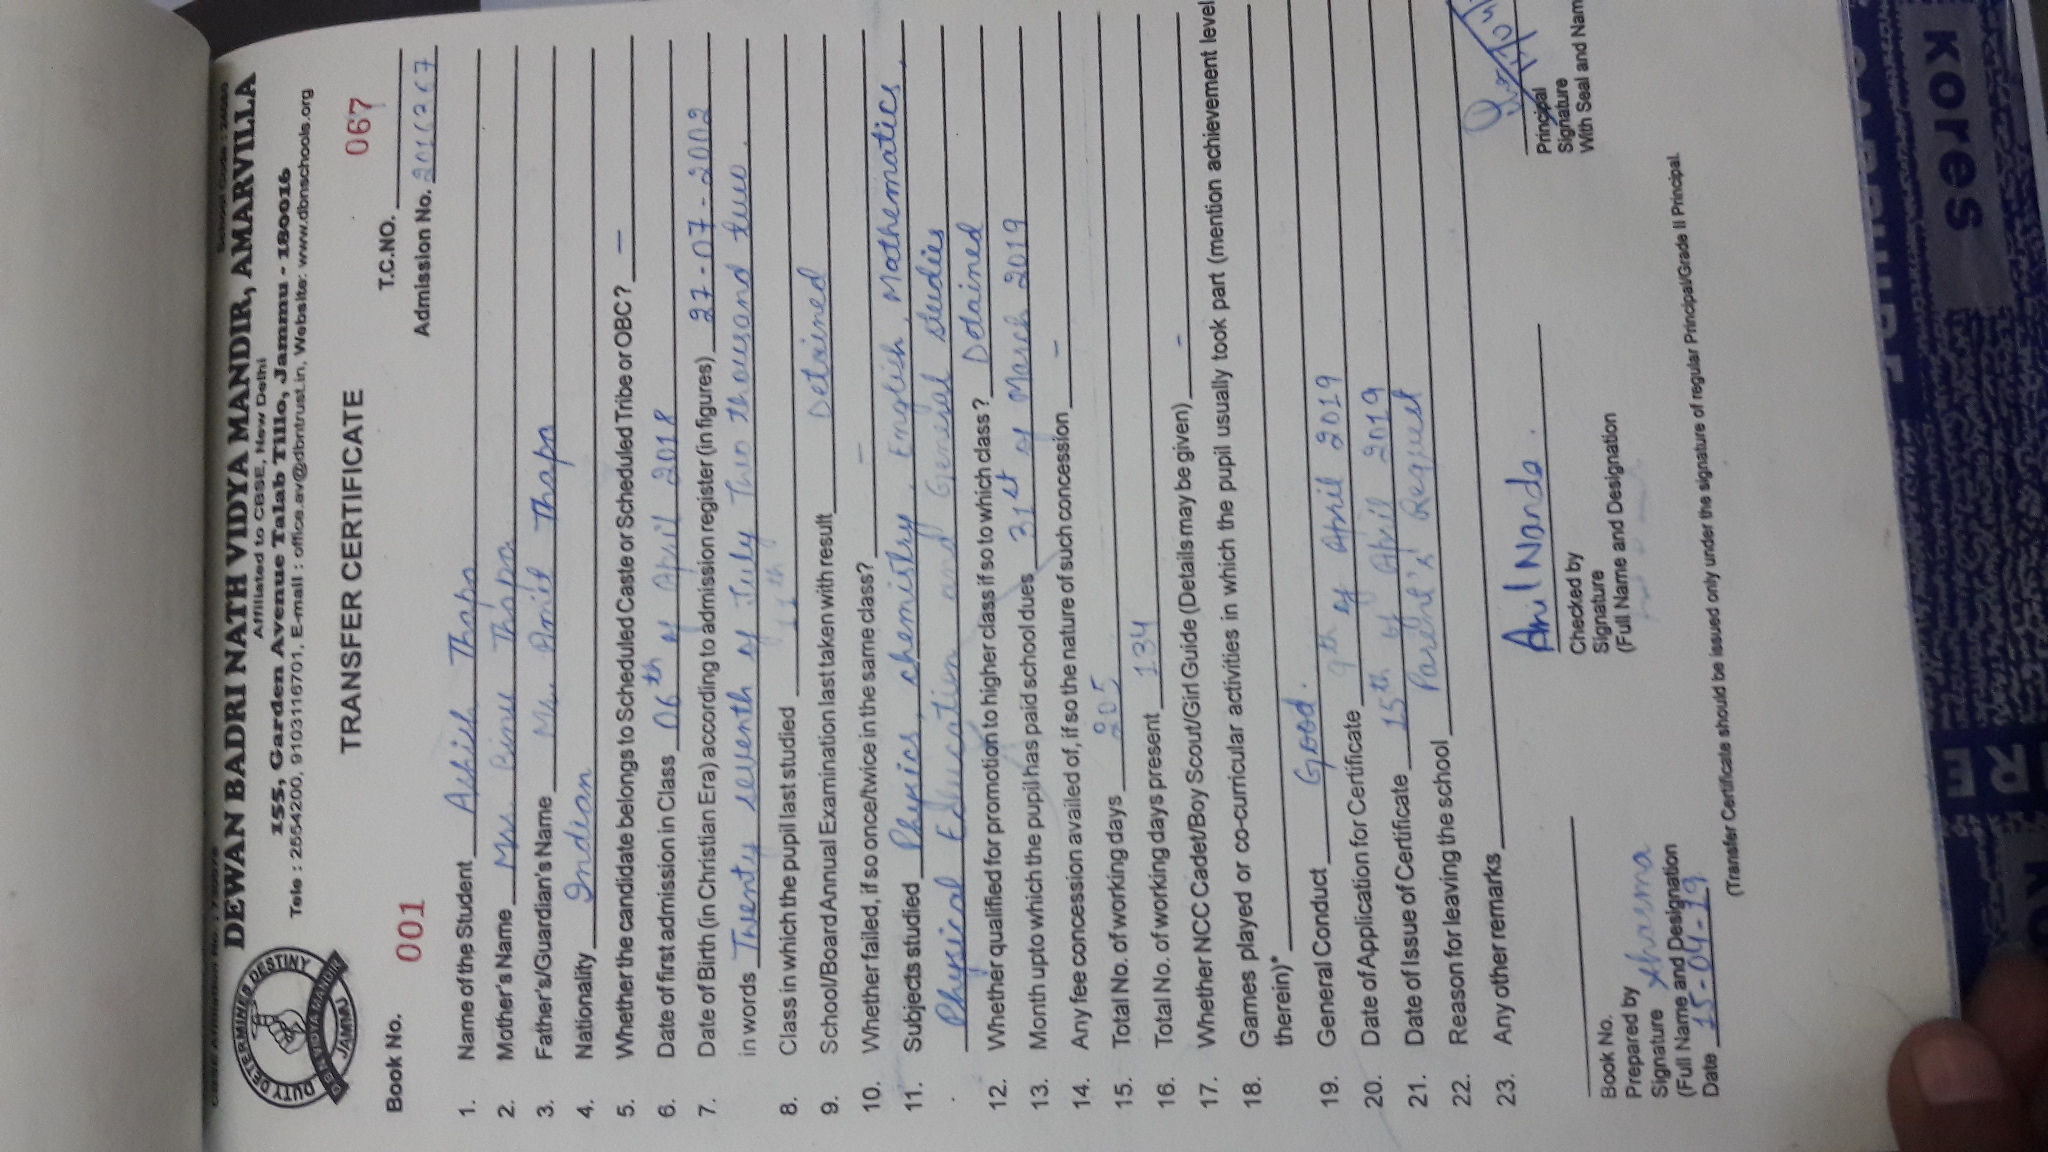 DEWAN BADRI NATH VIDYA MANDIR, AMARVILLA
Affiliated to CBSE, New Delhi
155, Garden Avenue Talab Tillo, Jammu - 180016
Tele : 2554200, 9103116701, E-mail : office.av@dbntrust.in, Website: www.dbnschools.org
DUTY DETERMINES DESTINY
JAMMU
TRANSFER CERTIFICATE
Book No. 001 T.C.NO. 067
Admission No.
1. Name of the Student Ashish Thapa
2. Mother's Name Mrs. Binu Thapa
3. Father's/Guardian's Name Mr. Thapa
4. Nationality Indian
5. Whether the candidate belongs to Scheduled Caste or Scheduled Tribe or OBC? -
6. Date of first admission in Class 06th of April 2018
7. Date of Birth (in Christian Era) according to admission register (in figures) 27-07-2002
in words Twenty seventh of July Two thousand two.
8. Class in which the pupil last studied 11th
9. School/Board Annual Examination last taken with result Detained
10. Whether failed, if so once/twice in the same class? -
11. Subjects studied Physics, Chemistry, English, Mathematics,
Physical Education and General studies
12. Whether qualified for promotion to higher class if so to which class? Detained
13. Month upto which the pupil has paid school dues 31st of March 2019
14. Any fee concession availed of, if so the nature of such concession -
15. Total No. of working days 205
16. Total No. of working days present 134
17. Whether NCC Cadet/Boy Scout/Girl Guide (Details may be given) -
18. Games played or co-curricular activities in which the pupil usually took part (mention achievement level
therein)*
19. General Conduct Good.
20. Date of Application for Certificate 9th of April 2019
21. Date of Issue of Certificate 15th of April 2019
22. Reason for leaving the school Parent's Request
23. Any other remarks
Anil Nanda.
Book No.
Prepared by
Signature Sharma
(Full Name and Designation
Date 15-04-19
Checked by
Signature
(Full Name and Designation
Principal
Signature
With Seal and Nam
(Transfer Certificate should be issued only under the signature of regular Principal/Grade II Principal.
kores